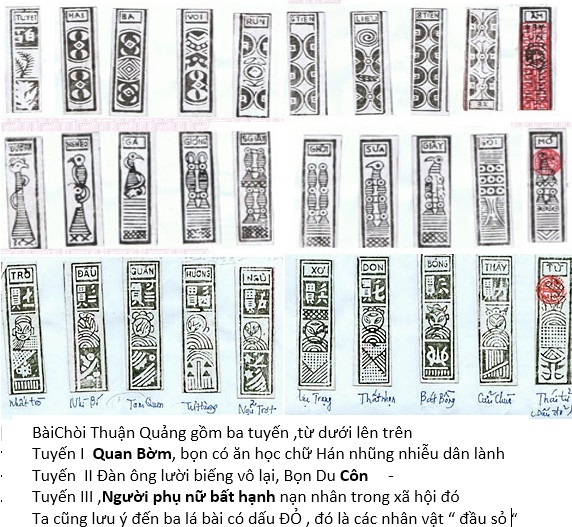 TUYẾT HAI BA VOI RÚN 5TIỀN LIỄU 8TIỀN ẦM
NGHÈO GÀ GIỐNG SƯA GIÀY MỎ
TRÒ ĐẤU QUĂN HƯƠNG NGỦ XƠ DON BỒNG THẦY TỬ
Nhất trò Nhì Bí Tam Quan Lục Trạng Thất Nhọn Bát Bồng Cửu Chùa Thái tử
BàiChòi Thuận Quảng gồm ba tuyến ,từ dưới lên trên
· Tuyến I Quan Bờm, bọn có ăn học chữ Hán nhũng nhiễu dân lành
· Tuyến II Đàn ông lười biếng vô lại, Bọn Du Côn -
· Tuyến III ,Người phụ nữ bất hạnh nạn nhân trong xã hội đó
Ta cũng lưu ý đến ba lá bài có dấu ĐỎ , đó là các nhân vật “ đầu sỏ “